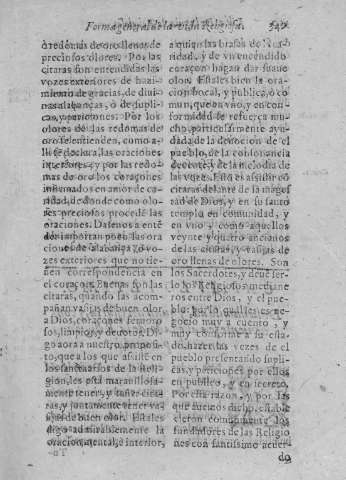 Forma general de la vida Religiosa.
o redomas de oro llenas de
preciosos olores. Por las
citaras son entendidas las
vozes exteriores de hazi-
miento de gracias, de diui-
nas alabanças, ò de supli-
cas, y peticiones. Por los
olores de las redomas de
oro se entienden, como a-
lli se declara, las oraciones
interiores: y por las redo-
mas de oro los coraçones
inflamados en amor de ca-
ridad, de donde como olo-
res preciosos procedē las
oraciones. Dasenos a entē
der importan poco las ora
ciones de alabança, ò vo-
zes exteriores que no tie-
nen correspondencia en
el coraçon. Buenas son las
citaras, quando las acom-
pañan vasijas de buen olor
a Dios, coraçones
limpios, y deuotos. Di-
go aora a nuestro proposi-
to, que a los que assisten en
los santuarios de la Reli-
gion, les està marauillosa-
mente tener, y tañer cita-
ras, y juntamente tener va-
sijas de buen olor. Estales
digo admirablemente la
oracion mental, e interior,
a quien las brasas de
ridad, y de vn encendido
coraçon hagan dar suaue
olor. Estales bien la ora-
cion bocal, y publica, ò co
mun, que en vno, y en con-
formidad se refuerça mu-
cho, particularmente ayu-
dada de la deuocion el
pueblo, de la consonancia
decente, y de la melodia de
las vozes. Ello es assistir cō
citaras delante de la mages
tad de Dios, y en su santo
templo en comunidad, y
en vno, como aquellos
veynte y quatro ancianos
de las citaras, y vasijas de
oro llenas de olores. Son
los Sacerdotes, y deuē ser-
lo los Religiosos, mediane
ros entre Dios, y el pue-
blo: por lo qual les es nego
ocio muy a cuento, y
muy conforme a su esta-
do, hazer las vezes de el
pueblo presentando supli-
cas, y peticiones por ellos
en publico, y en secreto.
Por esta razon, y por las
que auemos dicho, estable
cieron comunmente los
fundadores de las Religio
nes con santissimo acuer-
do